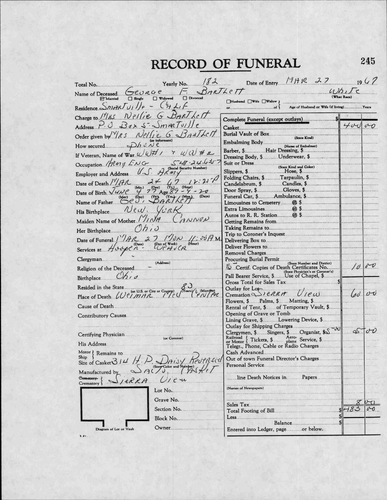 RECORD OF FUNERAL 245
Total No. Yearly No. 182 Date of Entry MAR 27 1967
Name of Deceased George F. Bartlett White
(What Race)
Married Single Widowed Divorced Husband Wife Widow Age of Husband or Wife (if living) Years
Residence Smartville - Calif
Charge to Mrs Nellie G Bartlett
Address P O Box 2 - Smartville
Order given by Mrs Nellie G. Bartlett
How secured Phone
If Veteran, Name of War WWI + WW II
Occupation Army Eng
(Social Security Number)
Employer and Address U S Army
Date of Death MAR 24 67
Date of Birth June
Name of Father Geo. Bartlett
His Birthplace New York
Maiden Name of Mother Minnie Cannen
Her Birthplace Ohio
Date of Funeral MAR 27 Mon 11:00 A.M.
Services at Hooper - Weaver
Clergyman
(Address)
Religion of the Deceased
Birthplace Ohio
Resided in the State
Place of Death Weimar Med Center
Cause of Death
Contributory Causes
Certifying Physician
(or Coroner)
His Address
Motor Ship Remains to
Size of Casket
Manufactured by Sac'to Casket
Cemetery
Crematory Sierra View
Lot No.
Grave No.
Section No.
Block No.
Owner
Diagram of Lot or Vault
Complete Funeral (except outlays) $
Casket 400 00
Burial Vault of Box
(State Kind)
Embalming Body
(Name of Embalmer)
Barber, $ Hair Dressing, $
Dressing Body, $ Underwear, $
Suit or Dress
(State Kind and Color)
Slippers, $ Hose, $
Folding Chairs, $ Tarpaulin, $
Candelabrum, $ Candles, $
Door Spray, $ Gloves, $
Funeral Car, $ Ambulance, $
Limousines to Cemetery @ $
Extra Limousines @ $
Autos to R. R. Station @ $
Getting Remains from
Taking Remains to
Trip to Coroner's Inquest
Delivering Box to
Deliver Flowers to
Removal Charges
Procuring Burial Permit
(State Number and District)
Certif. Copies of Death Certificates No. 10 00
Pall Bearer Service, $ Use of Chapel, $
Gross Total for Sales Tax $
Outlay for Lot
Cremation Sierra View 60 00
Flowers, $ Palms, $ Matting, $
Rental of Tent, $ of Temporary Vault, $
Opening of Grave or Tomb
Lining Grave, $ Lowering Device, $
Outlay for Shipping Charges
Clergymen, $ Singers, $ Organist, $5.00 5 00
Railroad Tickets, $ Aero plane Service, $
Telegr., Phone, Cable or Radio Charges
Cash Advanced
Out of town Funeral Director's Charges
Personal Service
line Death Notices in Papers
(Names of Newspapers)
Sales Tax 8 00
Total Footing of Bill $ 483 00
Less
Balance $
Entered into Ledger, page or below.